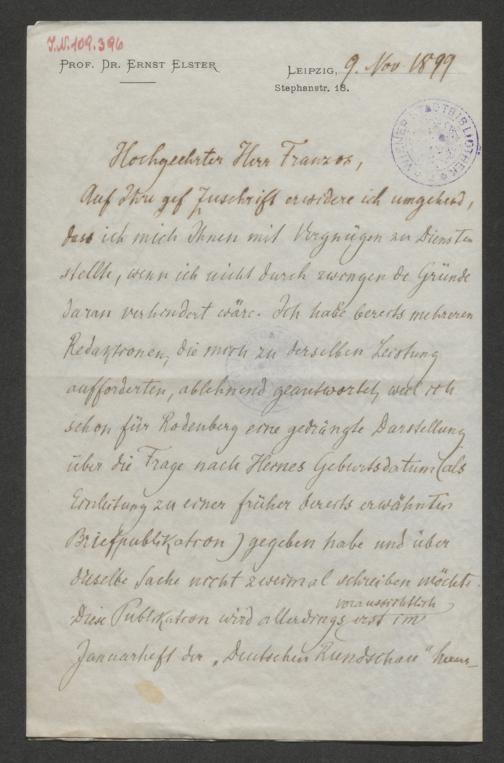 J.N. 109.396
PROF. DR. ERNST ELSTER
LEIPZIG, 9. Nov 1899
Stephanstr. 18.
Hochgeehrter Herr Franzos,
Auf Ihre gef Zuschrift erwidere ich umgehend,
dass ich mich Ihnen mit Vergnügen zu Diensten
stellte, wenn ich nicht durch zwingende Gründe
daran verhindert wäre. Ich habe bereits mehreren
Redaktionen, die mich zu derselben Leistung
aufforderten, ablehnend geantwortet, weil ich
schon für Rodenberg eine gedrängte Darstellung
über die Frage nach Heines Geburtsdatum (als
Einleitung zu einer früher bereits erwähnten
Briefpublikation) gegeben habe und über
dieselbe Sache nicht zweimal schreiben möchte.
Diese Publikation wird allerdings voraussichtlich erst im
Januarheft der „Deutschen Rundschau"